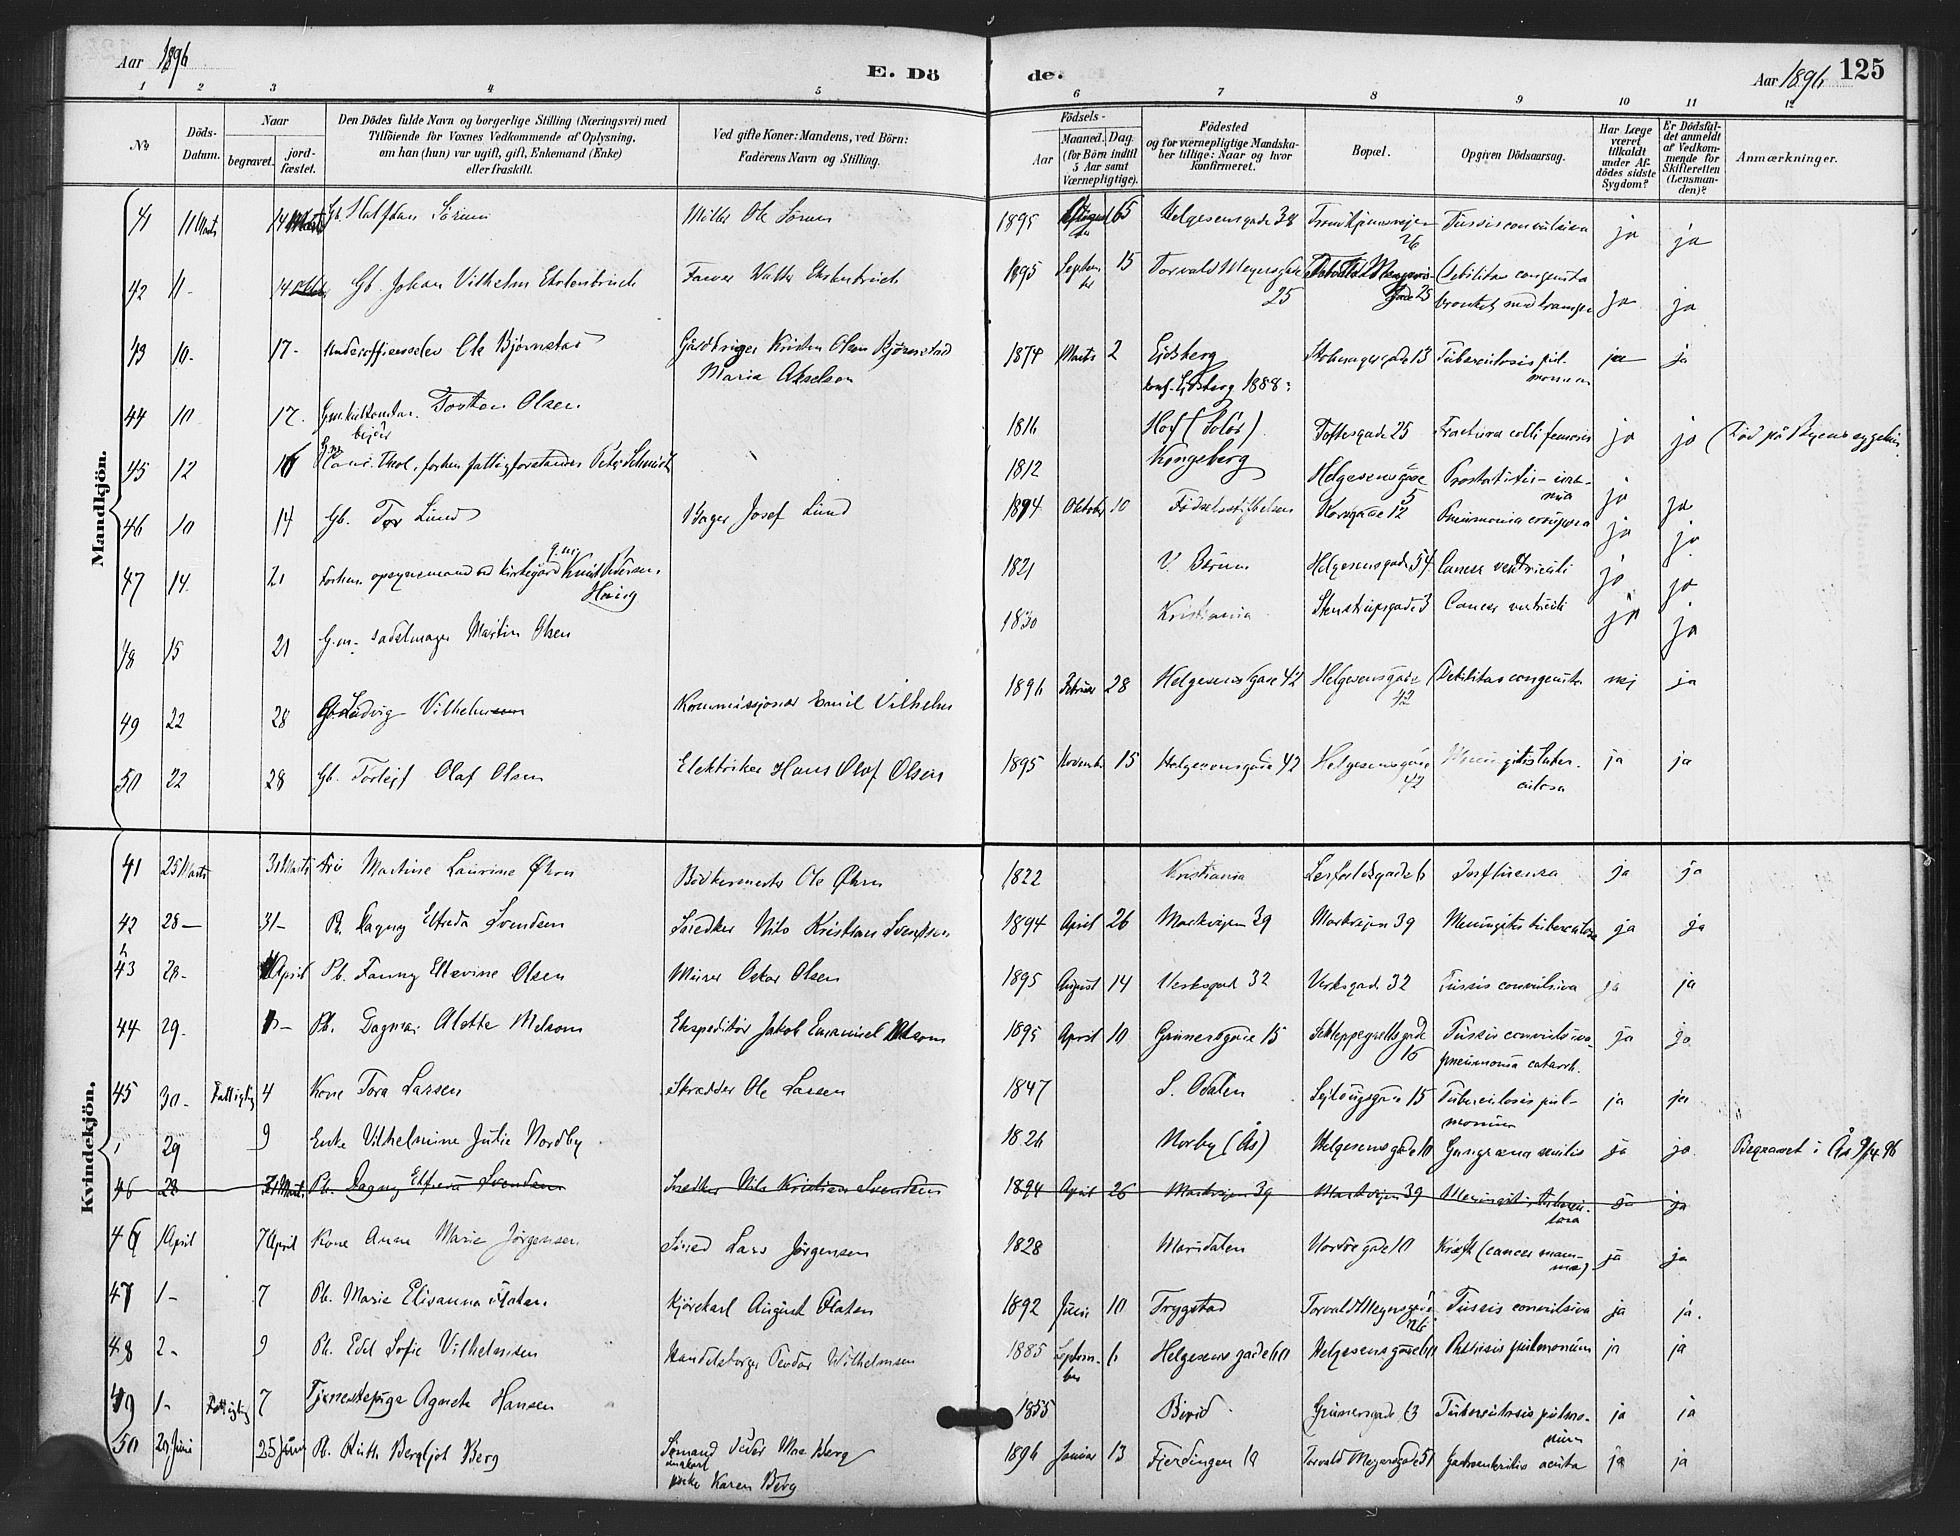 Aar 1896
E. Döde.
Aar 1896 125
1 2 3 4 5 6 7 8 9 10 11 12
No
Döds-Datum.
Naar
begravet.
jordfæstet.
Den Dödes fulde Navn og borgerlige Stilling (Næringsvei) med
Tilföiende for Voxnes Vedkommende af Oplysning,
om han (hun) var ugift, gift, Enkemand (Enke)
eller fraskilt.
Ved gifte Koner: Mandens, ved Börn:
Faderens Navn og Stilling.
Födsels-
Aar
Maaned. Dag.
(for Börn indtil
5 Aar samt
Værnepligtige).
Födested
og for værnepligtige Mandska-
ber tillige: Naar og hvor
konfirmeret.
Bopæl.
Opgiven Dödsaarsag.
Har Læge
været
tilkaldt
under Af-
dödes sidste
Sygdom?
Er Dödsfal-
det anmeldt
af Vedkom-
mende for
Skifteretten
(Lensman-
den)?
Anmærkninger.
Mandkjön.
41 11 Marts 14 Marts Gb. Halfdan Sörum Möller Ole Sörum 1895 August 65 Helgesensgade 38 Trondhjemsvejen 26 Tussis convulsiva ja ja
42 11 - 14 Gb. Johan Vilhelm Farver 1895 September 15 Torvald Meyersgade 25 Torvald Meyersgade 25 Debilitas congenita ja ja
43 10 - 17 - Underofficerselev Ole Bjørnstad Gårdbruger Kristen Olsen Bjørnstad
Maria Akselsen 1874 Marts 2 Ejdsberg
konf. Ejdsberg 1888 Tuberculosis pulmonum ja ja
44 10 17. Torsten Olsen 1816 Hof (Solör) Toftesgade 25 Fractura colli femoris ja ja Död på Byens sygehus.
45 12 16 forhen. fattigforstander Peter Schmidt 1812 Kongsberg Helgesensgade 5 Prostatitis - uræmia ja ja
46 10 14 Gb. Tor Lund Bager Josef Lund 1894 Oktober 10 Födselsstiftelsen Korsgade 12 Pneumonia crouposa ja ja
47 14. 21 Forhen. opsynsmand ved kirkegård g.m. Knut Pedersen
1821 V. Bærum Helgesensgade 54 Cancer ventriculi ja ja
48 15 21 G.m. sadelmager Martin Olsen 1830 Kristiania Stenstrupsgade 3 Cancer ventriculi ja ja
49 22 28 Gb. Ludvig Vilhelmsen Kommissionær Emil Vilhelm 1896 Februar 28 Helgesensgade 42 Helgesensgade 42 Debilitas congenita nej ja
50 22 28 Gb. Torleif Olaf Olsen Elektriker Hans Olaf Olsen 1895 November 15 Helgesensgade 42 Helgesensgade 42 Meningitis tuberculosa ja ja
Kvindekjön.
41 25 Marts 31 Marts Martine Laurine Øhrn Bödkermester Ole Øhrn 1822 Kristiania Influenza ja ja
42 28 — 31 - Pb. Dagny Elfreda Svendsen Snedker Nils Kristian Svendsen 1894 April 26 Markvejen 39 Markvejen 39 Meningitis tuberculosa ja ja
43 28 - April Pb. Fanny Olsen Murer Oskar Olsen 1895 August 14 Verksgade 32 Verksgade 32 Tussis convulsiva ja ja
44 29 - Pb. Dagmar Alette Melsom Ekspeditör Jakob Emanuel Melsom 1895 April 10 Grünersgade 15 Schleppegrellsgade 16 Tussis convulsiva
pneumonia catarrh. ja ja
45 30 - Fattiglig 4 Kone Tora Larsen Skrædder Ole Larsen 1847 S. Odalen Sejldugsgade 15 Tuberculosis pulmonum ja ja
29 9 Enke Vilhelmine Julie Nordby 1826 Norby (Ås) Helgesensgade 10 Gangræna senilis ja ja Begravet i Ås 9/4 96
46 28 31 Marts Pb. Dagny Elfreda Svendsen Snedker Nils Kristian Svendsen 1894 April 26 Markvejen 39 Markvejen 39 Meningitis tuberculosa ja ja
46 1 April 7 April Kone Anne Marie Jørgensen Smed Lars Jørgensen 1828 Maridalen Nordregade 10 Kræft (cancer mammæ) ja ja
47 1 - 7 Pb. Marie Elisanna Flaten Kjörekarl August Flaten 1892 Juni 10 Trygstad Torvald Meyersgade 26 Tussis convulsiva ja ja.
48 2 - 9 Pb. Edel Sofie Vilhelmsen Handelsborger Teodor Wilhelmsen 1885 September 6 Helgesensgade 60 Helgesensgade 60 Phthisis pulmonum ja ja
49 1 - Fattiglig 7 Tjenestepige Agnete Hansen 1855 Birid Grünersgade 13 Tuberculosis pulmonum ja ja
50 20 Juni 25 Juni Pb. Ruth Bergljot Berg Sömand
Karen Berg 1896 Januar 13 Fjerdingen 10 Torvald Meyersgade 51 Gastroenteritis acuta ja ja